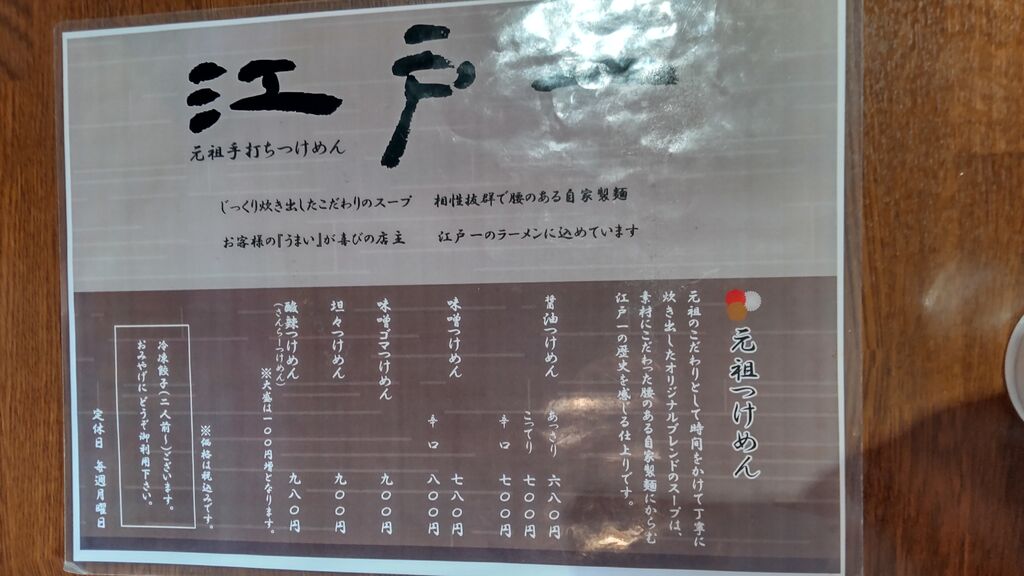 江戸一
元祖手打ちつけめん
じっくり炊き出したこだわりのスープ 相性抜群で腰のある自家製麺
お客様の『うまい』が喜びの店主 江戸一のラーメンに込めています
元祖つけめん
元祖のこだわりとして時間をかけて丁寧に
炊き出したオリジナルブレンドのスープは、
素材にこだわった腰のある自家製麺にからむ
江戸一の歴史を感じる仕上りです。
醤油つけめん あっさり 六八〇円
こってり 七〇〇円
辛口 七〇〇円
味噌つけめん 七八〇円
辛口 八〇〇円
味噌ゴマつけめん 九〇〇円
坦々つけめん 九〇〇円
酸辣つけめん 九八〇円
(さんらーつけめん)
※大盛は一〇〇円増となります。
※価格は税込みです。
冷凍餃子(二人前〜)ございます。
おみやげに どうぞ御利用下さい。
定休日 毎週月曜日